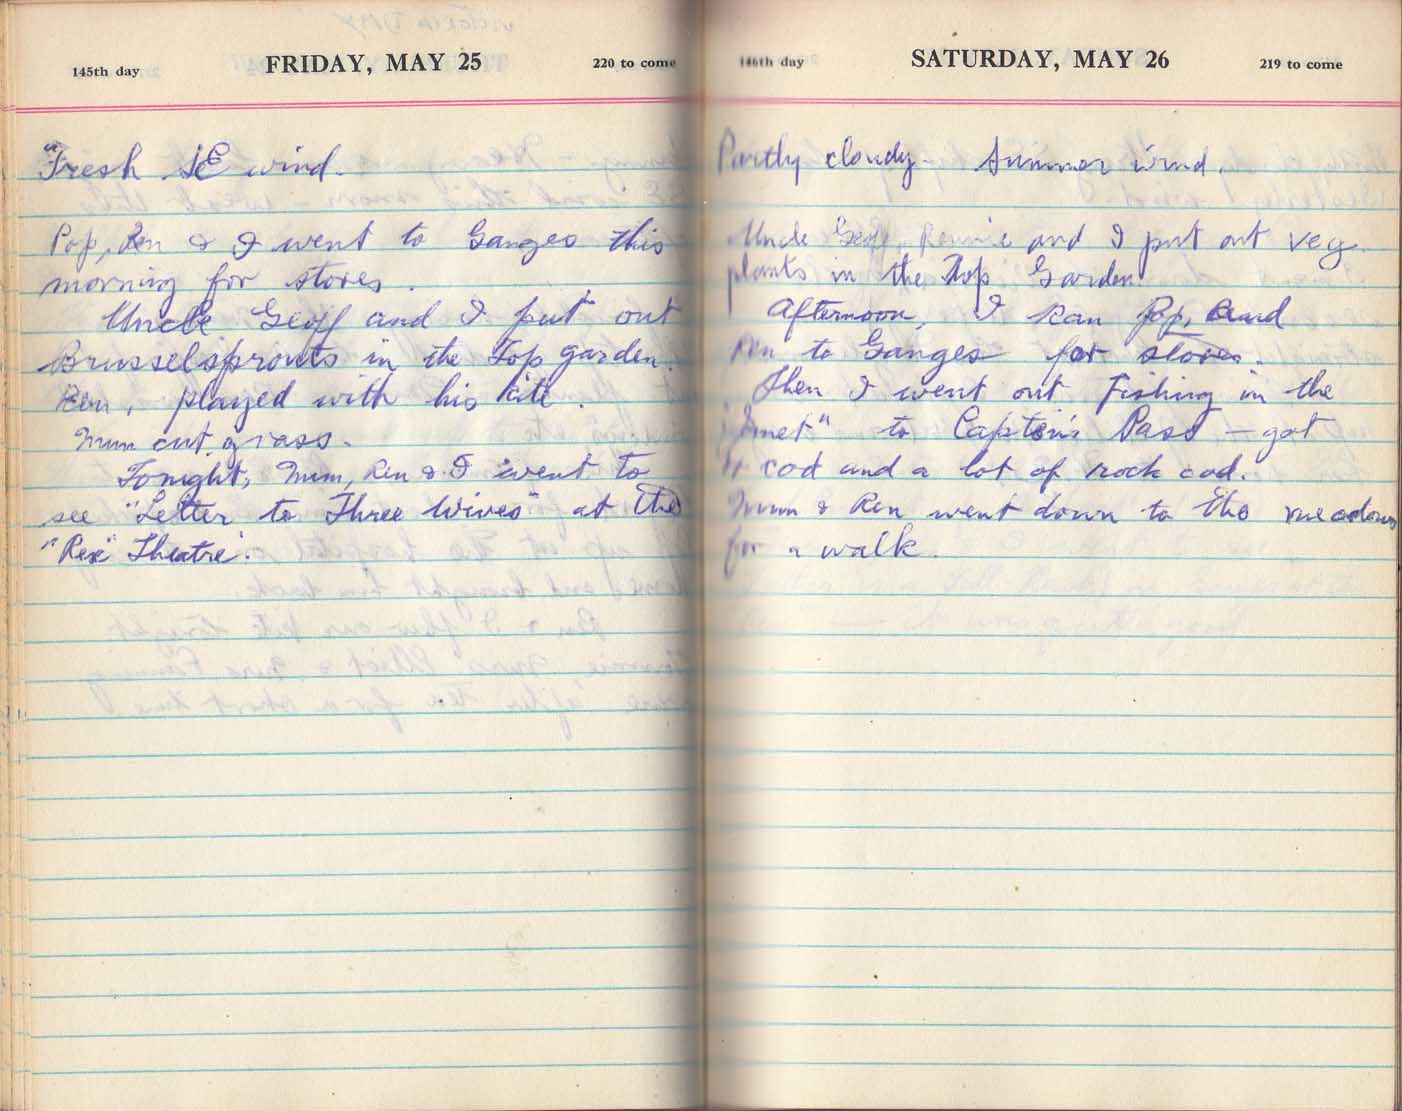 145th day FRIDAY, MAY 25 220 to come
"Fresh SE wind.
Pop, Ren & I went to Ganges this
morning for stores.
Uncle Geoff and I put out
Brusselsprouts in the Top garden.
Ren, played with his kite.
Mum cut grass.
Tonight, Mum, Ren & I went to
see "Letter to Three Wives" at the
"Rex" Theatre".
146th day SATURDAY, MAY 26 219 to come
Partly cloudy - Summer wind.
Uncle Geoff, Rennie and I put out veg.
plants in the Top Garden.
Afternoon, I Ran Pop, and
Ren to Ganges for stores.
Then I went out Fishing in the
to Captain's Pass - got
cod and a lot of rock cod.
Mum & Ren went down to the meadows
for a walk.